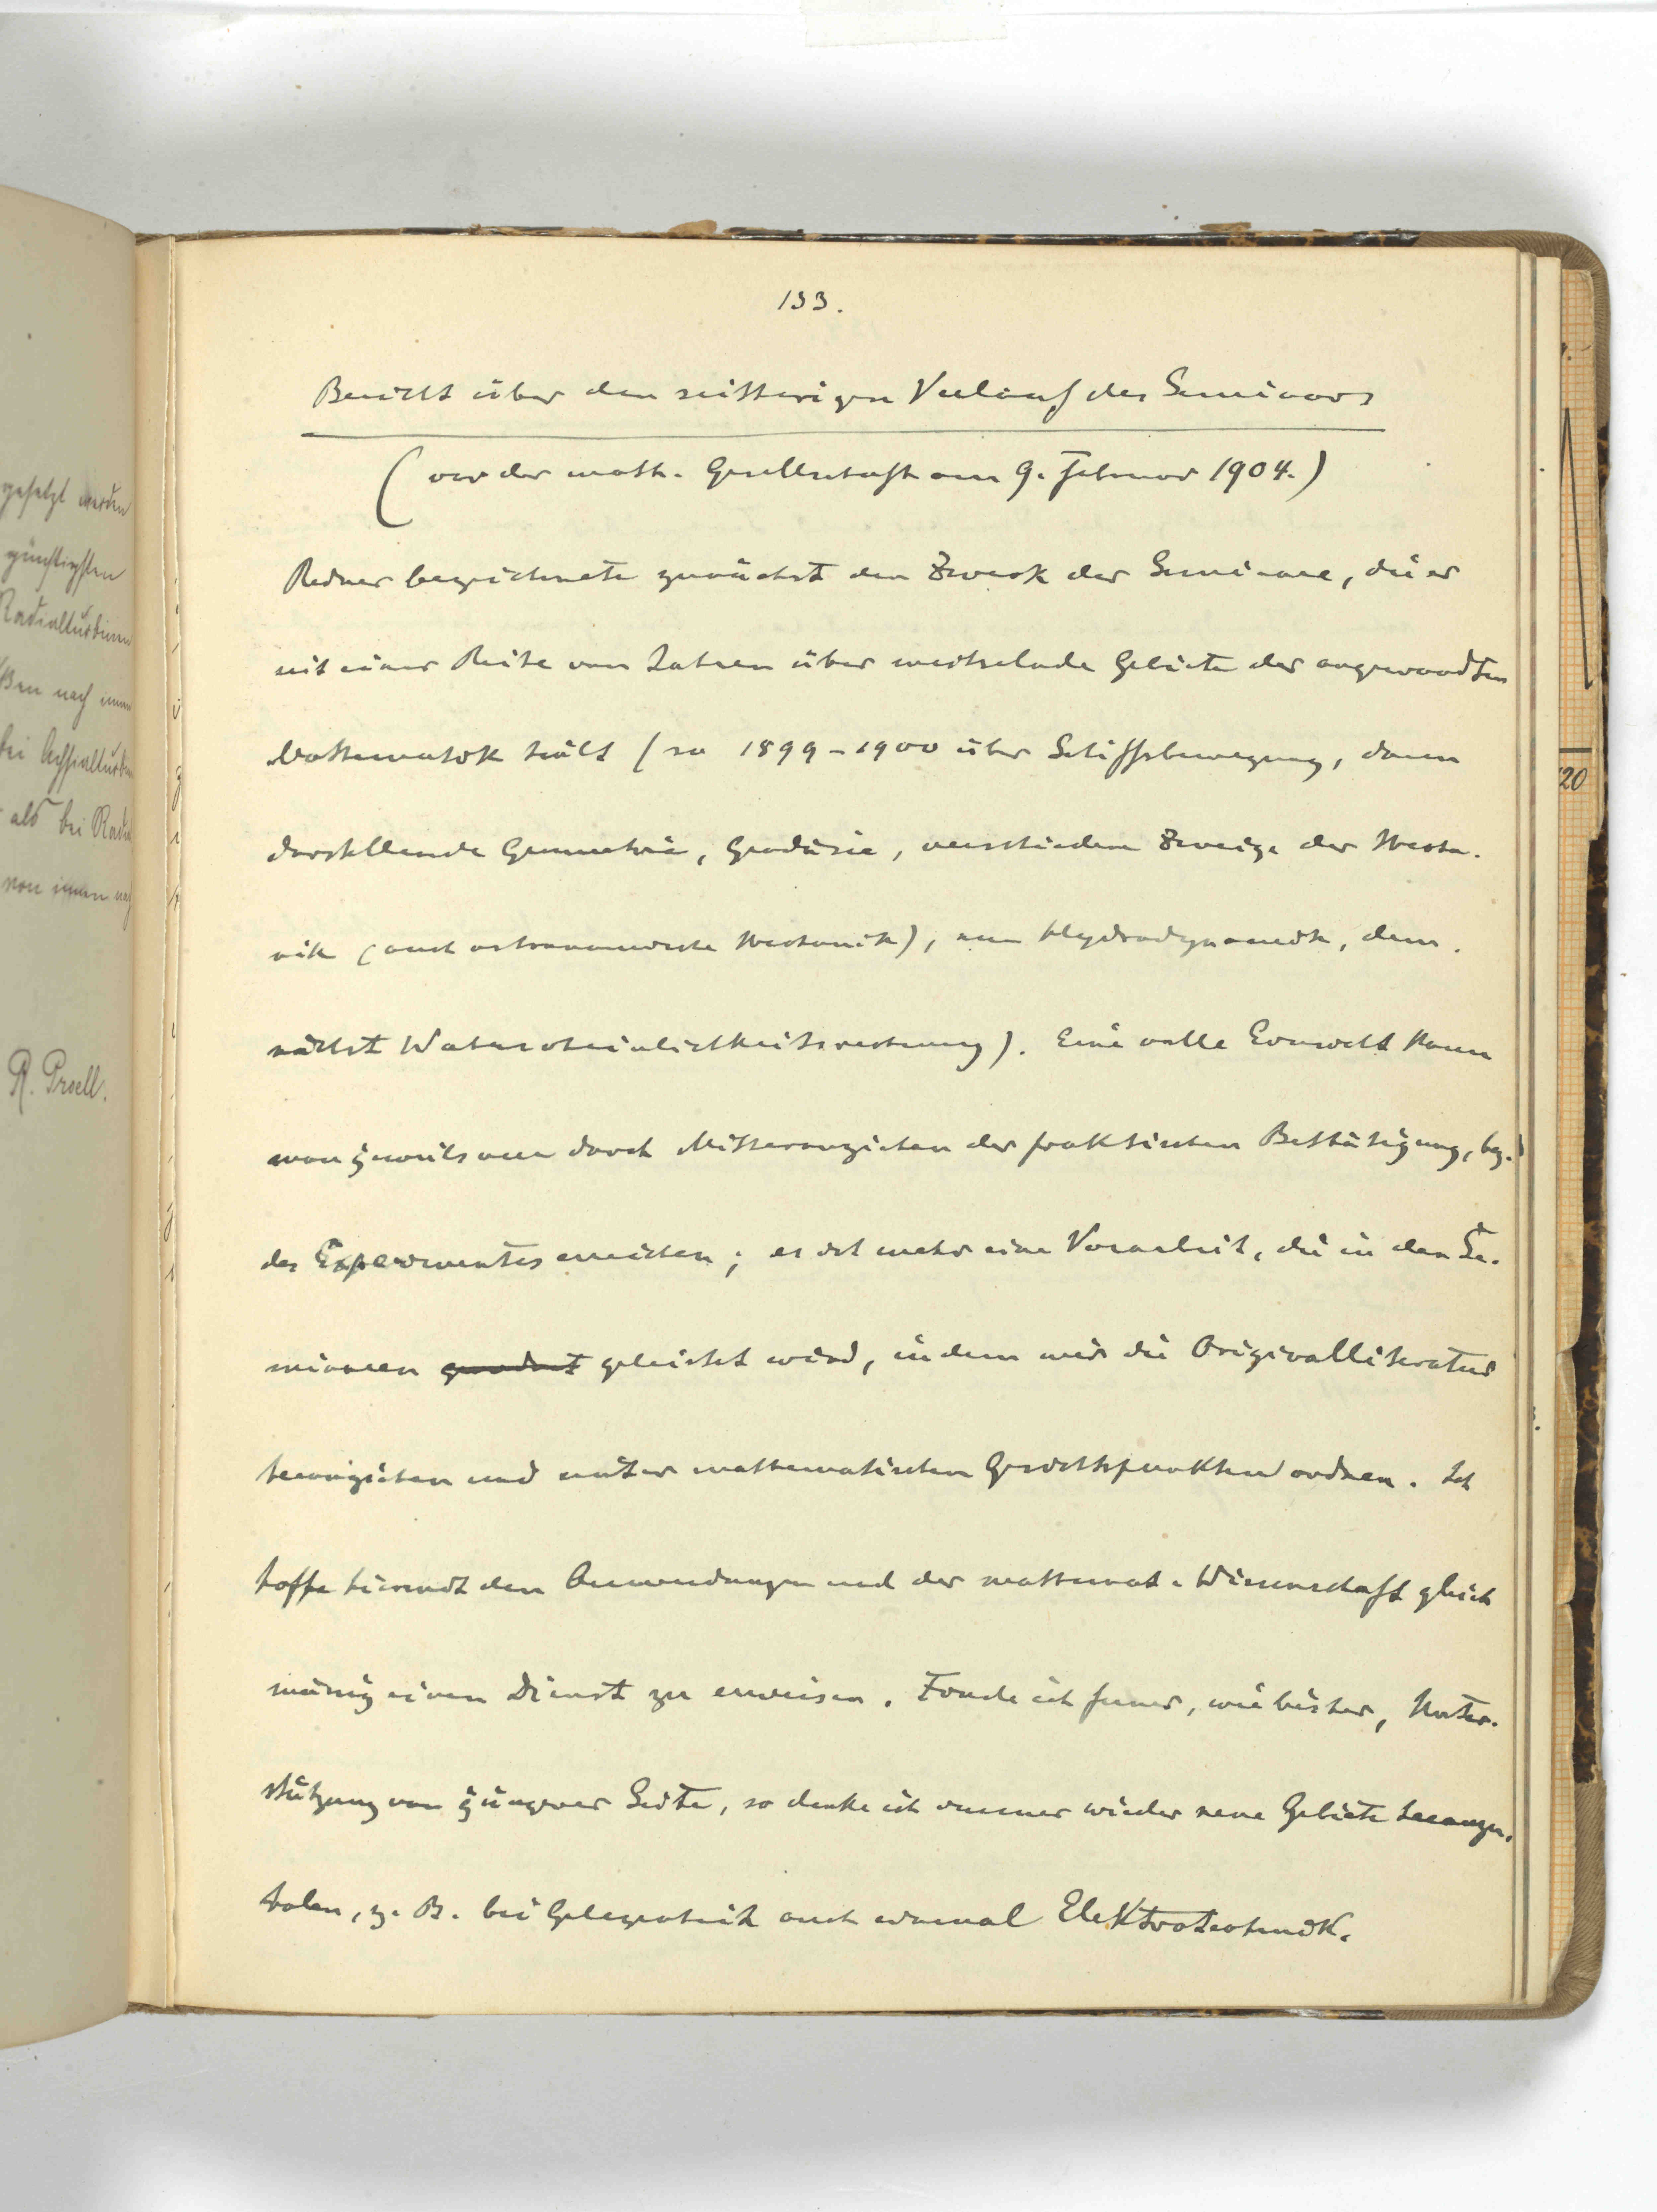 gesetzt werden
günstigsten
Radialturbinen
ßen nach innen
bei Achsialturbi
als bei Radi
von innen nach
R. Proell.
133.
Bericht über den seitherigen Verlauf des Seminars
(vor der math. Gesellschaft am 9. Februar 1904.)
Redner bezeichnete zunächst den Zweck der Seminare, die er
seit einer Reihe von Jahren über wechselnde Gebiete der angewandten
Mathematik hält (so 1899-1900 über Schiffsbewegung, dann
darstellende Geometrie, Geodäsie, verschiedene Zweige der Mecha-
nik (auch astronomische Mechanik), nun Hydrodynamik, dem-
nächst Wahrscheinlichkeitsrechnung). Eine volle Einsicht kann
man jeweils nur durch Mitheranziehen der praktischen Bethätigung, bez.
des Experimentes erreichen; es ist mehr eine Vorarbeit, die in den Se-
minaren geleistet wird, indem wir die Originallitteratur
heranziehen und unter mathematischen Gesichtspunkten ordnen. Ich
hoffe hiermit den Anwendungen und der mathemat. Wissenschaft gleich
mässig einen Dienst zu erweisen. Finde ich ferner, wie bisher, Unter-
stützung von jüngerer Seite, so denke ich immer wieder neue Gebiete heranzu-
holen, z. B. bei Gelegenheit auch einmal Elektrotechnik.
20